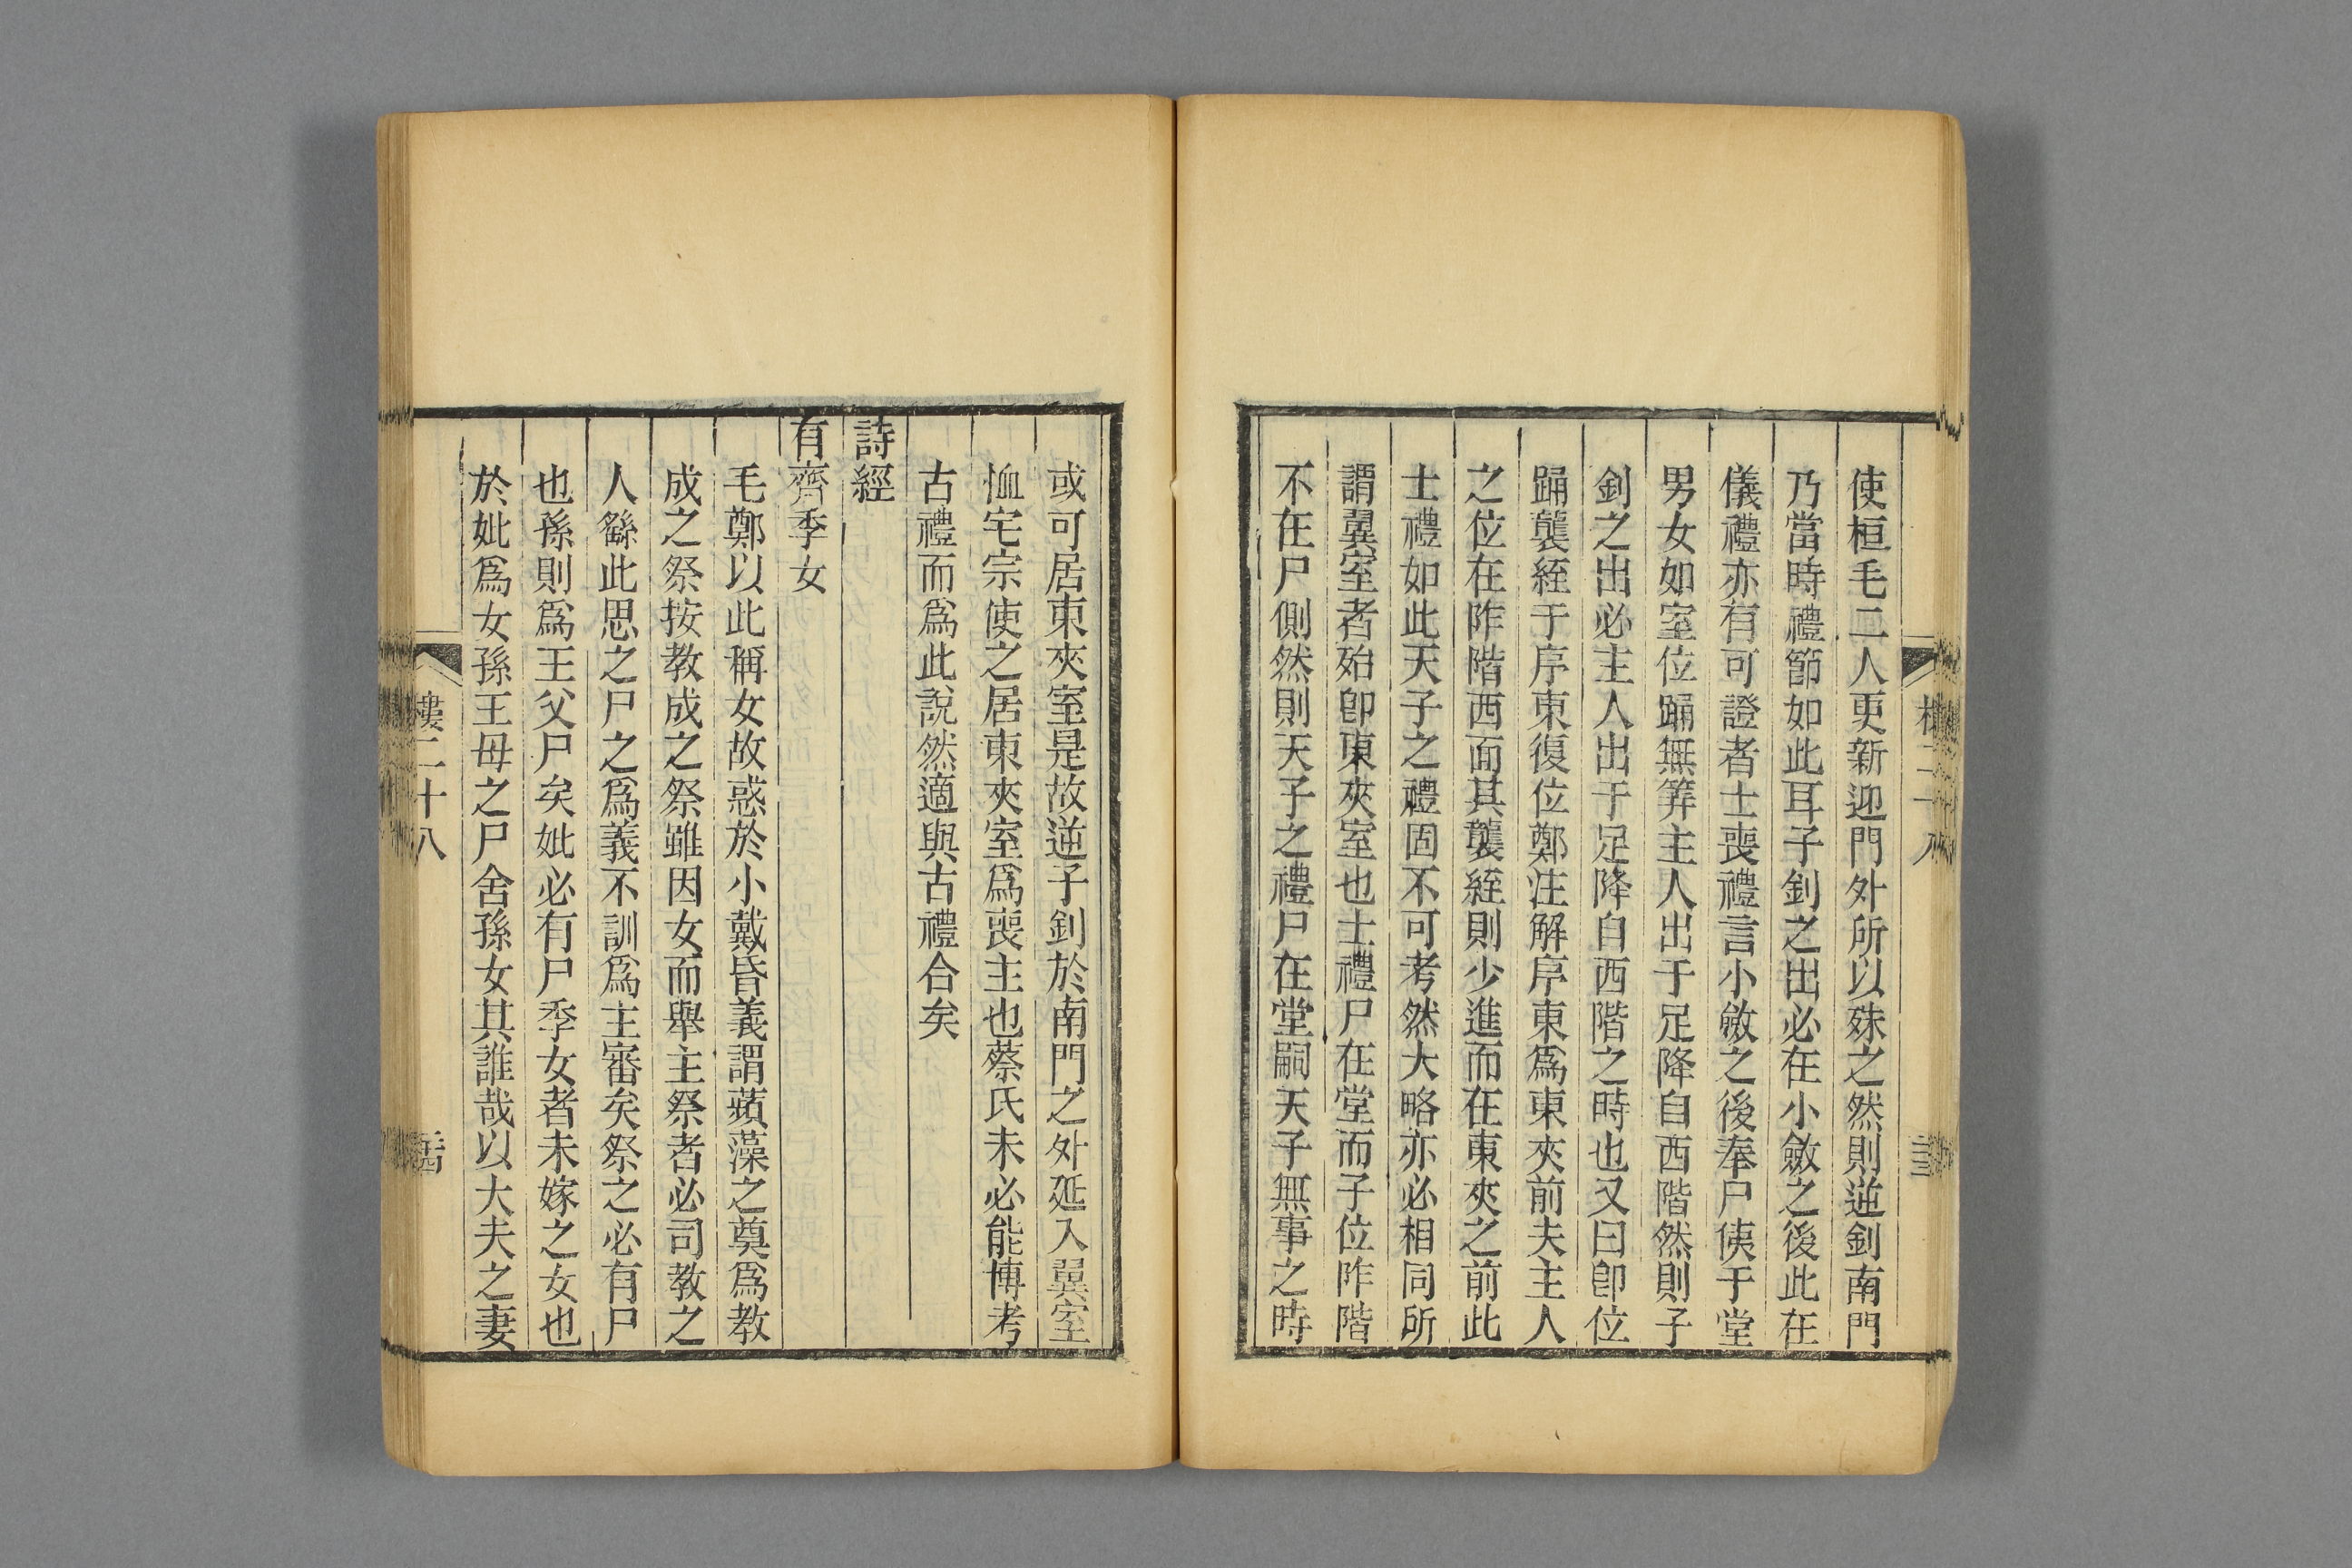 使桓毛二人更新迎門外所以殊之然則逆釗南門
乃當時禮節如此耳子釗之出必在小斂之後此在
儀禮亦有可證者士喪禮言小斂之後奉尸侇于堂
男女如室位踊無筭主人出于足降自西階然則子
釗之出必主人出于足降自西階之時也又曰卽位
踊襲絰于序東復位鄭注解序東爲東夾前夫主人
之位在阼階西面其襲絰則少進而在東夾之前此
士禮如此天子之禮固不可考然大略亦必相同所
謂翼室者殆卽東夾室也士禮尸在堂而子位阼階
不在尸側然則天子之禮尸在堂嗣天子無事之時
或可居東夾室是故逆子釗於南門之外延入翼室
恤宅宗使之居東夾室爲喪主也蔡氏未必能博考
古禮而爲此說然適與古禮合矣
詩經
有齊季女
毛鄭以此稱女故惑於小戴昏義謂蘋藻之奠爲教
成之祭按教成之祭雖因女而舉主祭者必司教之
人繇此思之尸之爲義不訓爲主審矣祭之必有尸
也孫則爲王父尸矣妣必有尸季女者未嫁之女也
於妣爲女孫王母之尸舍孫女其誰哉以大夫之妻
樓二十八